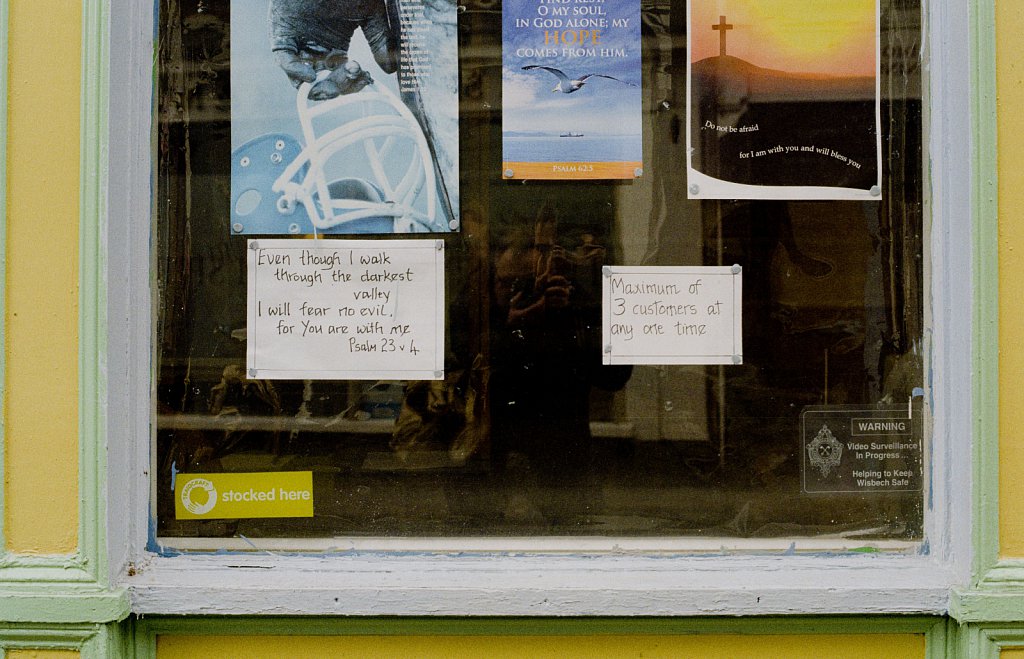 FIND REST,
O MY SOUL,
IN GOD ALONE; MY
HOPE
COMES FROM HIM.
PSALM 62:5
Do not be afraid
for I am with you and will bless you
Even though I walk
through the darkest
valley
I will fear no evil,
for You are with me
Psalm 23 v 4
Maximum of
3 customers at
any one time
stocked here
WARNING
Video Surveillance
In Progress...
Helping to Keep
Wisbech Safe